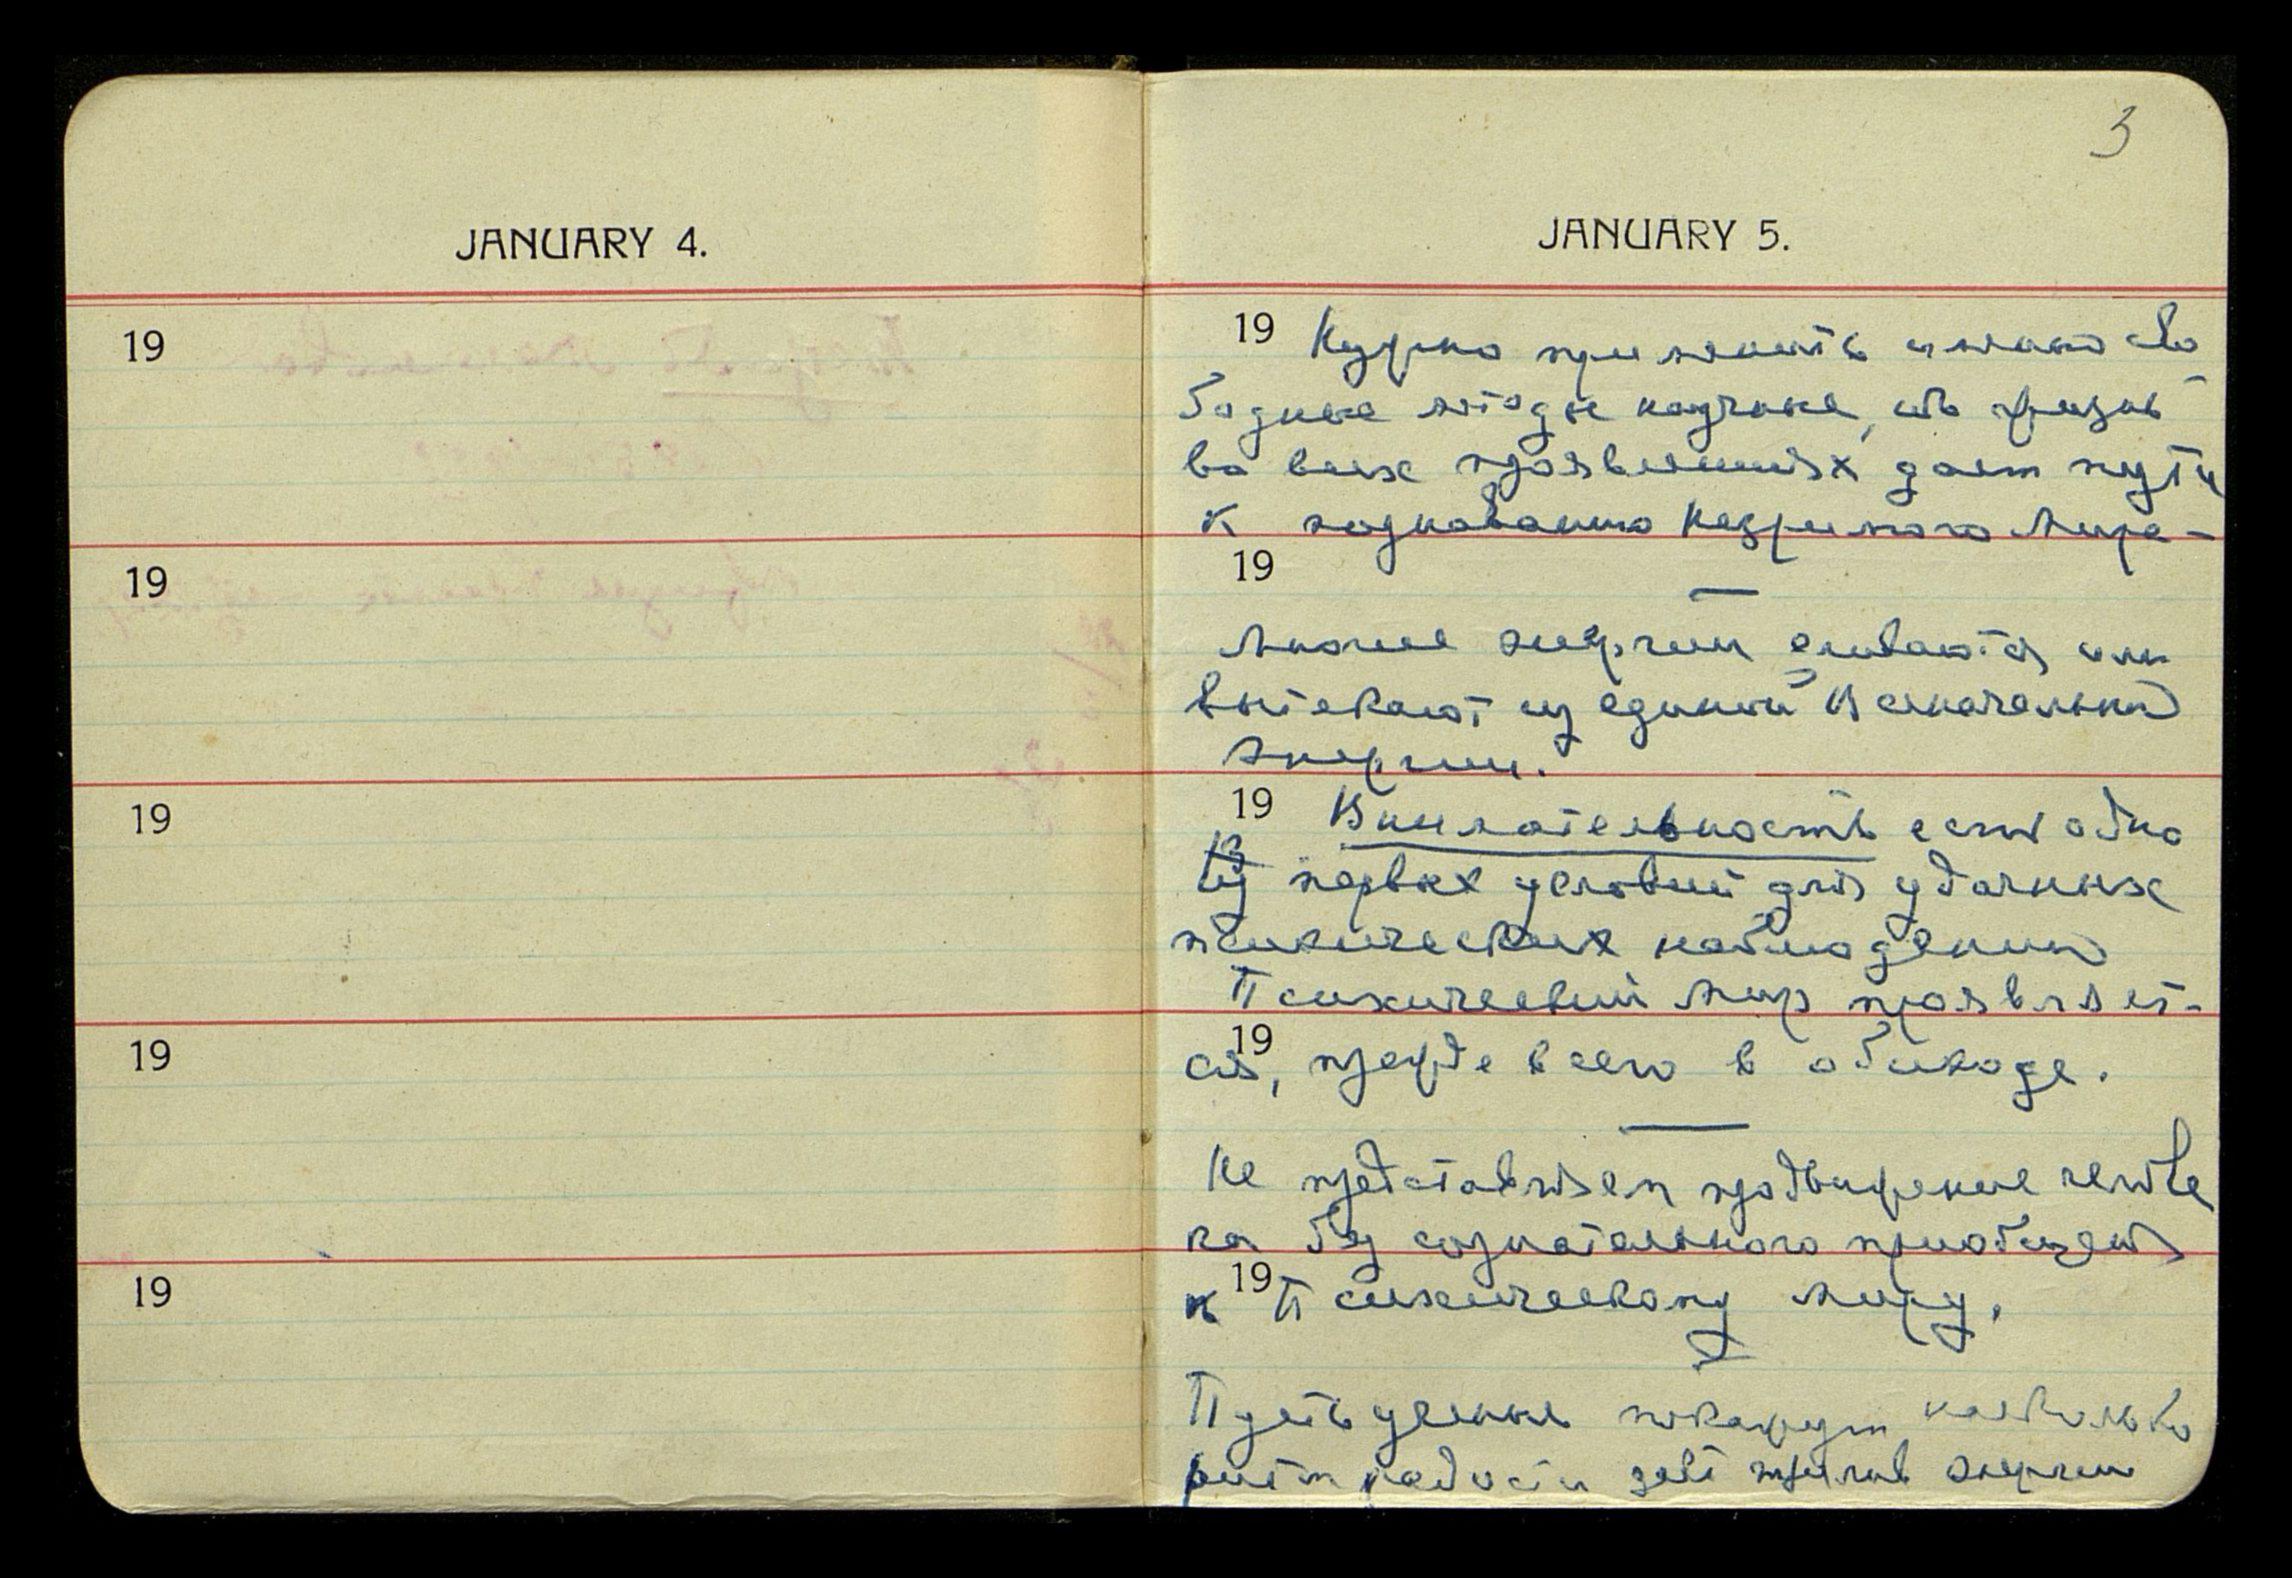 JANUARY 4.
19
19
19
19
19
3
JANUARY 5.
19 Нужно применить именно сво
бодные методы научные,
во всех проявлениях дает пути
к познаванию Незримого Мира –
19
Многие энергии сливаются или
вытекают из единой Всеначальной
энергии.
19 Внимательность есть одно
из первых условий для удачных
психических наблюдений
Психический Мир проявляет-
19
ся, прежде всего в обиходе.
Не представляем продвижение челове
ка без сознательного приобщения
19
к Психическому Миру.
Пусть ученые покажут насколько
ритм радости дает прилив энергии